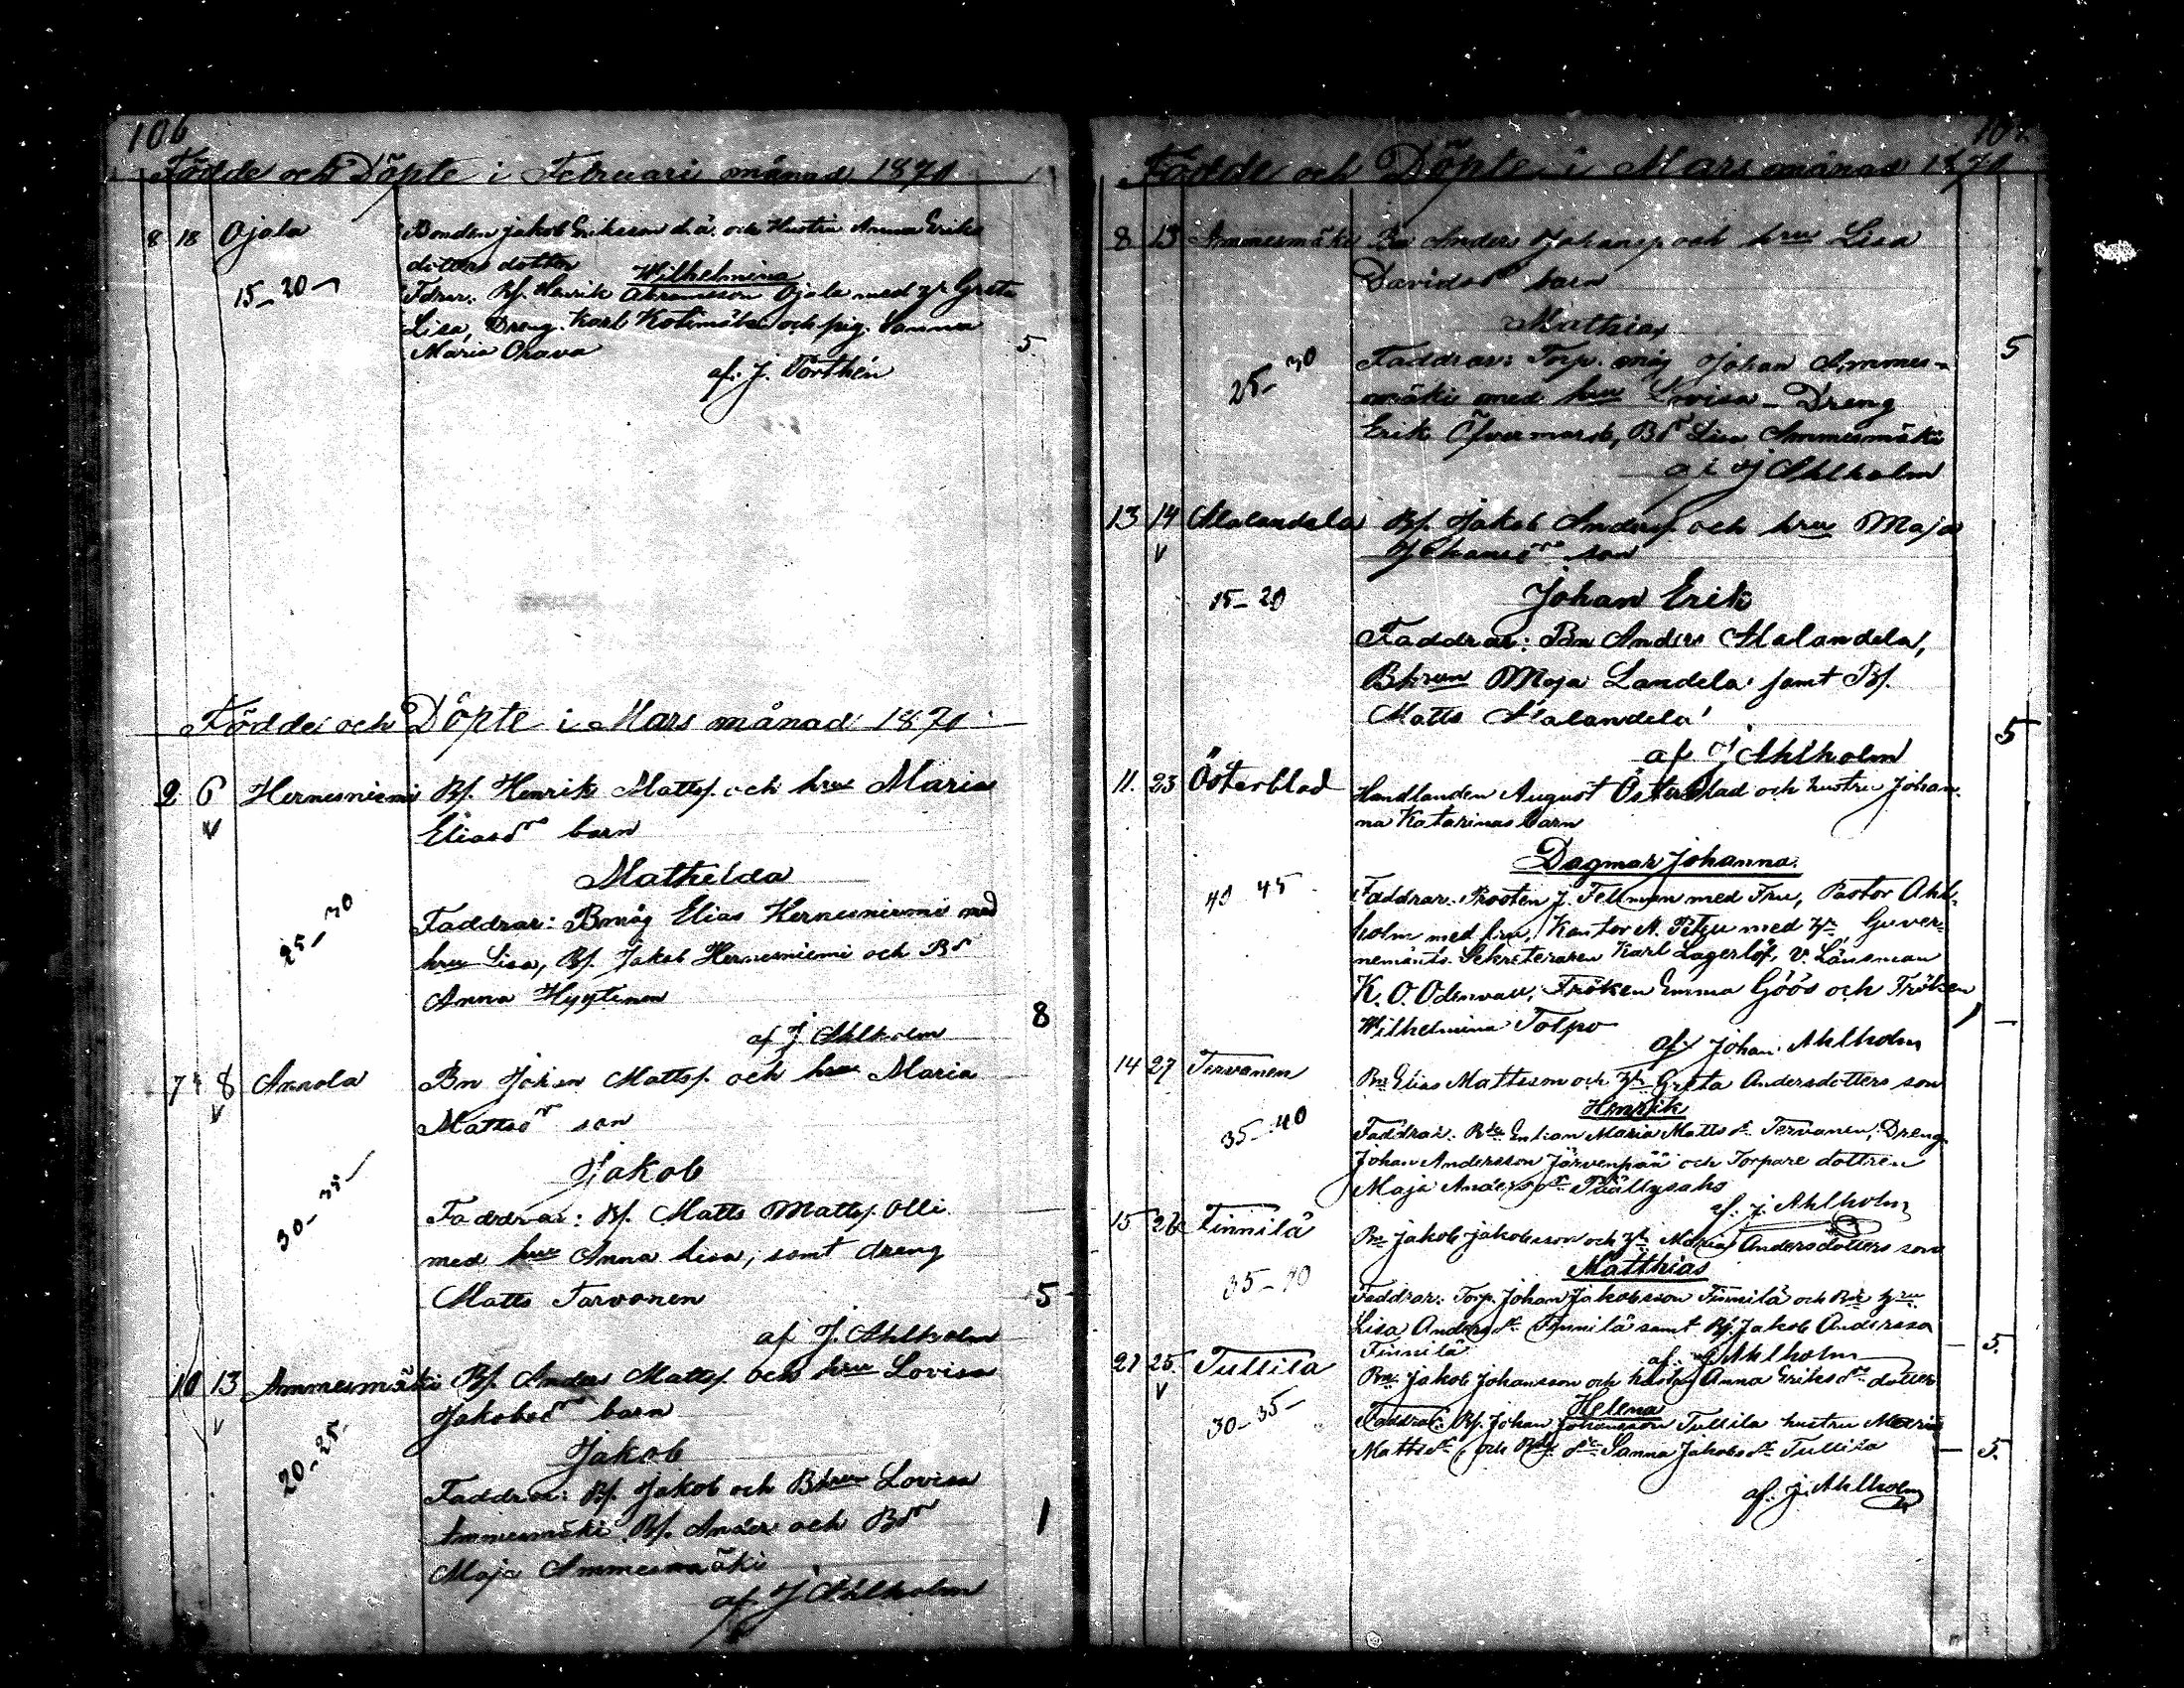 106
Födde och Döpte i Februari månad 1871
8 18 Ojala Bonden Jakob Eriksson d.ä. och Hustru Anna Eriks
dotters dotter
Wilhelmina
15-20 Fdrar: Bs. Henrik Abramsson Ojala med h. Greta
Lisa, Dreng. Karl Kotimäki och pig. Sanna
Maria Orava
5.
af. J. Porthén
Födde och Döpte i Mars månad 1871
2 6 Hernesniemi Bs. Henrik Matts. och hru Maria
Eliasdr barn
Mathilda
25-30 Faddrar: Bmåg Elias Hernesniemi med
hru Lisa, Bs. Jakob Hernesniemi och Bdr
Anna Hyytinen
8
af J Ahlholm
7 8 Annola Bn Johan Matts. och hru Maria
Mattsdr son
Jakob
30-35 Faddrar: Bs. Matts Matts. Olli
med hru Anna Lisa, samt dreng
Matts Tarvonen
5
af J. Ahlholm
10 13 Ammesmäki Bs. Anders Matts. och hru Lovisa
Jakobsdr barn
Jakob
20-25 Faddrar: Bs. Jakob och Bhru Lovisa
Ammesmäki Bs. Anders och Bdr
1
Maja Ammesmäki
af J Ahlholm
Födde och Döpte i Mars månad 1871
8 13 Ammesmäki Bn Anders Johanss. och hru Lisa
Davidsdr barn
Mathias
25-30 Faddrar: Torp. måg Johan Ammes-
5
mäki med hru Lovisa - Dreng
Erik Öfvermark, Bdr Lisa Ammesmäki
af J Ahlholm
13 14 Alalandela Bs. Jakob Anderss. och hru Maja
Johansdr son
15-20 Johan Erik
Faddrar: Bn Anders Alalandela,
Bhrun Maja Landela samt Bs.
Matts Alalandela
5
af J Ahlholm
11. 23 Österblad Handlanden August Österblad och hustru Johan-
na Katarinas barn
Dagmar Johanna.
40 45 Faddrar: Prosten J. Fellman med Fru, Pastor Ahl-
holm med fru, Kantor M. med h., Guver-
nements Sekreteraren Karl Lagerlöf, V. Länsman
K. O. Odenvall, Fröken Emma Göös och Fröken
Wilhelmina Tolpo
af Johan Ahlholm
14 27 Tervonen Bn Elias Mattsson och h. Greta Andersdotters son
Henrik
35-40 Faddrar: Enkan Maria Mattsdr Tervonen, Dreng
Johan Andersson Järvenpää och Torpare dottren
Maja Andersdr Päällysaho
af. J. Ahlholm
15 26 Finnilä Bn Jakob Jakobsson och h. Maria Andersdotters son
Matthias
35-40 Faddrar: Torp. Johan Jakobsson Finnilä och hru
Lisa Andersdr Finnilä samt Bs. Jakob Andersson
Finnilä
5.
af. J Ahlholm
21 25. Tullila Bn Jakob Johansson och hustru Anna Eriksdr dotter
Helena
30-35 Faddrar: Bs. Johan Johansson Tullila hustru Maria
Mattsdr, och Sanna Jakobsdr Tullila
5.
af. J. Ahlholm